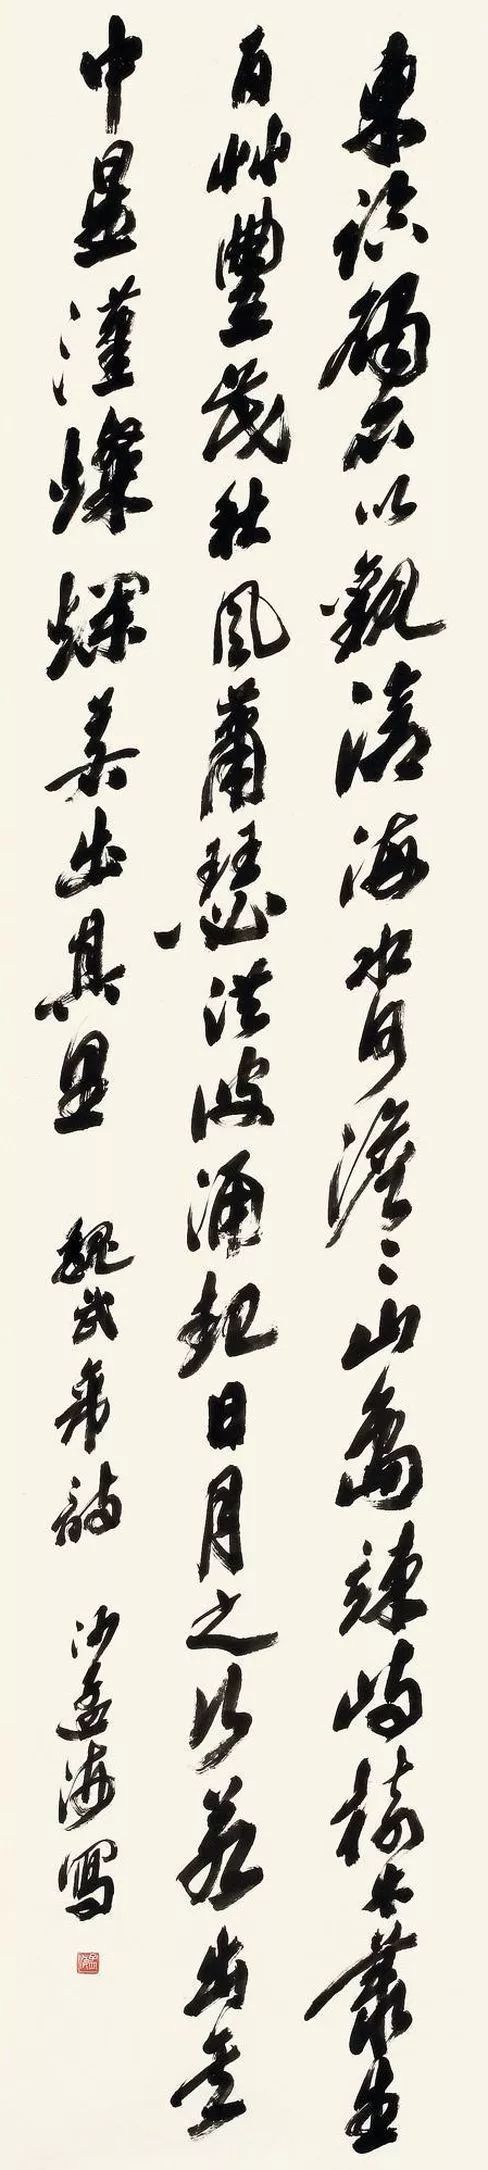 東臨碣石以觀滄海水何澹〻山島竦峙樹木叢生
百艸豐茂秋風蕭瑟洪波涌起日月之行若出其
中星漢燦爛若出其里 魏武帝詩 沙孟海寫